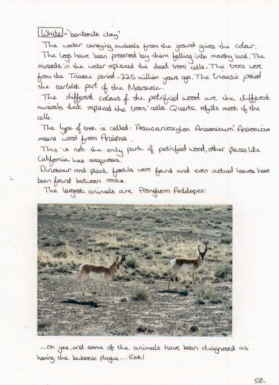 White - 'bentonite clay'
The water carrying minerals from the ground gives the colour.
The logs have been preserved by them falling into marshy land. The
minerals in the water replaced the dead trees cells. The trees were
from the Triassic period - 225 million years ago. The Triassic period
the earliest part of the Mesozoic.
The different colours of the petrified wood are the different
minerals that replaced the trees' cells. Quartz refills most of the
cells.
The type of tree is called: 'Araucarioxylon Arizonicum' Arizonicum
means wood from Arizona.
This is not the only park of petrified wood, other places like
California has
Dinosaur and plant fossils were found and even actual leaves have
been found between rocks.
The largest animals are Pronghorn Antelopes:
...oh yes, and some of the animals have been diagnosed as
having the bubonic plague...